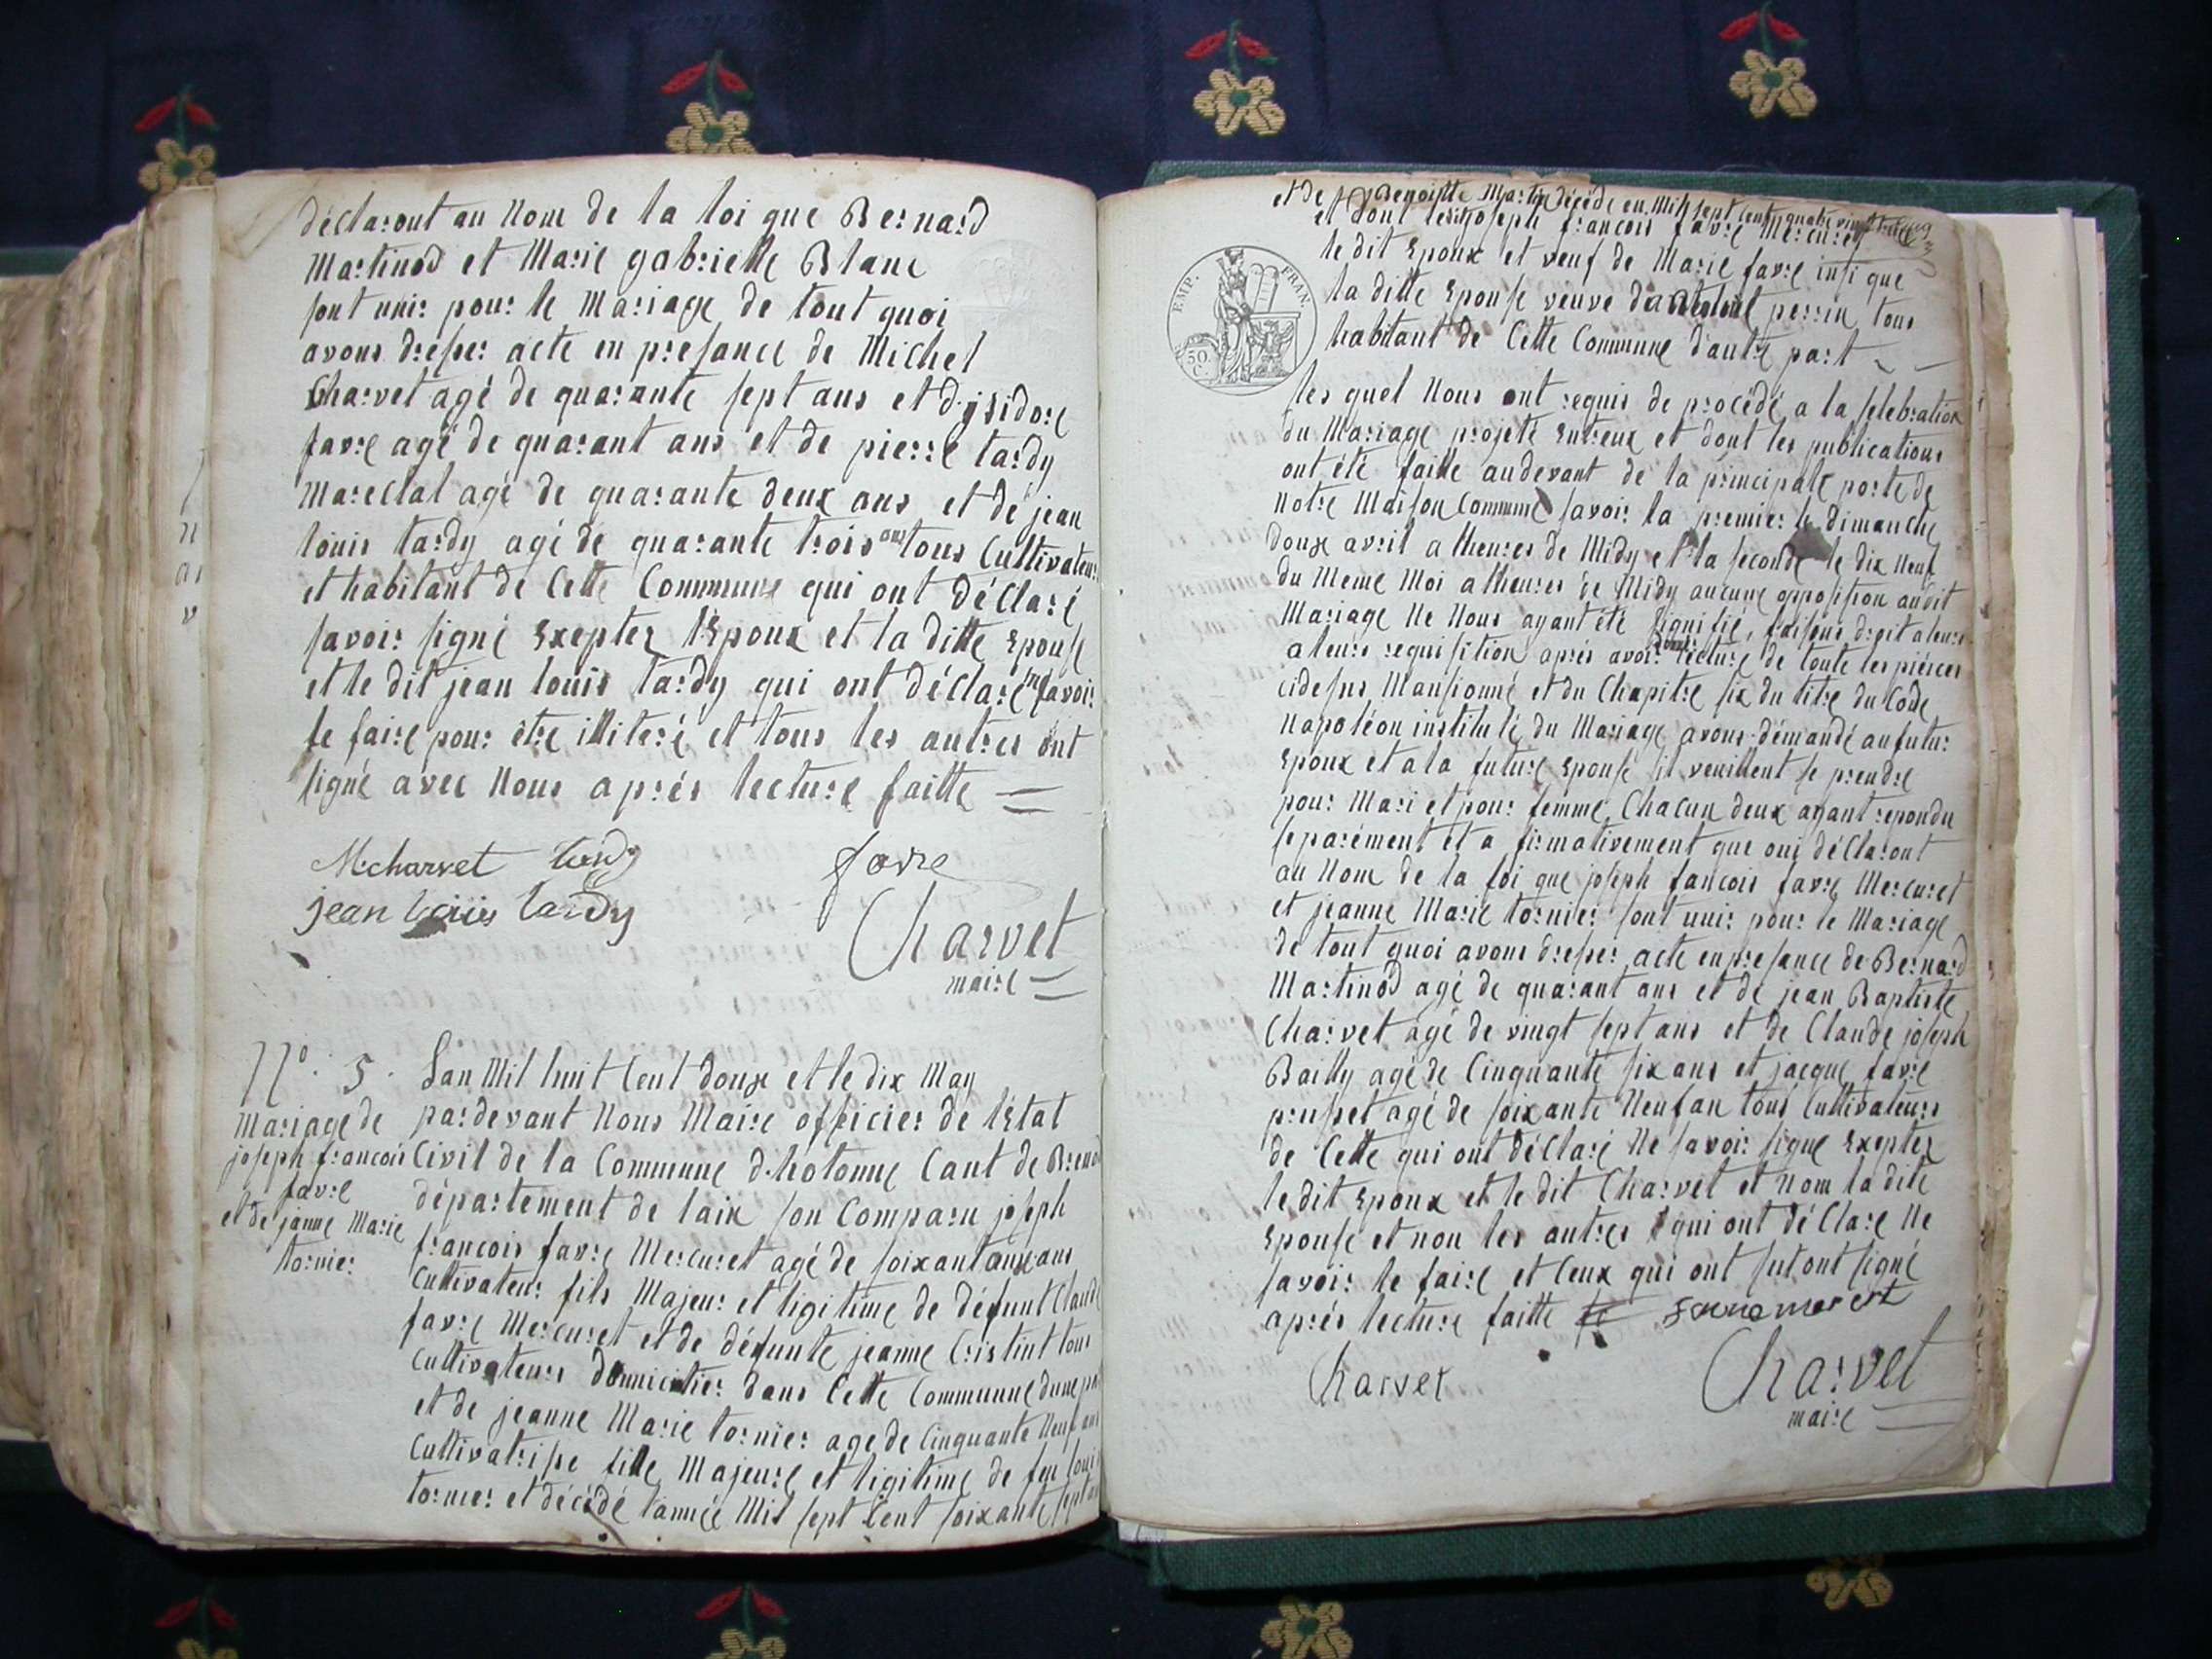 déclaront au Nom de la loi que Bernard
Martinod et Marie gabrielle Blanc
sont unir pour le Mariage de tout quoi
avons dresser acte en presance de Michel
Charvet agé de quarante sept ans et d.ysidore
favre agé de quarant ans et de pierre tardy
Marechal agé de quarante deux ans et de jean
louis tardy agé de quarante trois ans tous Cultivateurs
et habitant de Cette Commune qui ont déclaré
savoir signé Exepter l'Epoux et la ditte Epouse
et le dit jean louis tardy qui ont déclaré savoir
le faire pour être illiteré et tous les autres ont
signé avec Nous aprés lecture faitte
M charvet tardy favre
jean louis tardy
Charvet
maire
N° 5.
Mariage de
joseph francois
favre
et de janne Marie
tornier
Lan Mil huit Cent douze et le dix May
pardevant Nous Maire officier de l'Etat
Civil de la Commune d.hotonne Cant de Breno
département de lain son Comparu joseph
francois favre Mercuret agé de soixant ans
Cultivateur fils Majeur et ligitime de défunt Claude
favre Mercuret et de défunte jeanne Cristint tous
Cultivateurs domicilier dans Cette Commune dune pa
et de jeanne Marie tornier age de Cinquante Neuf ans
Cultivatrisse fille Majeure et ligitime de feu loui
tornier et décédé l'année Mil sept Cent soixante sept
et de Benoitte Martin décédé en Mil sept Cent quatre vingt
et dont joseph francois favre Mercuret
le dit Epoux et veuf de Marie favre insi que
la ditte Epouse veuve perrin tous
habitant de Cette Commune d'autre part
EMP. FRAN.
50 C.
les quel Nous ont requis de procédé a la selebration
du Mariage projeté Entreux et dont les publications
ont été faitte audevant de la principale porte de
Notre Maison Commune savoir la premier le dimanche
douze avril a lheures de Midy et la seconde le dix Neuf
du Meme Moi a lheures de Midy aucune opposition audit
Mariage Ne Nous ayant été signifié, faisons droit a leurs
a leurs requisition aprés avoir donné lecture de toute les piéces
cidesus Mansionné et du Chapitre six du titre du Code
Napoléon institulé du Mariage avons démandé au futur
Epoux et a la future Epouse sil veuillent se prendre
pour Mari et pour femme Chacun deux ayant repondu
separément et a firmativement que oui déclaront
au Nom de la loi que joseph fancois favre Mercuret
et jeanne Marie tornier sont unir pour le Mariage
de tout quoi avons dresser acte en presance de Bernard
Martinod agé de quarant ans et de jean Baptiste
Charvet agé de vingt sept ans et de Claude joseph
Bailly agé de Cinquante six ans et jacque favre
prusset agé de soixante Neuf an tous Cultivateurs
de Cette qui ont déclaré Ne savoir signe Exepter
le dit Epoux et le dit Charvet et Nom la dite
Epouse et non les autres qui ont déclare Ne
savoir le faire et Ceux qui ont sut ont signé
aprés lecture faitte
Charvet
Charvet
maire